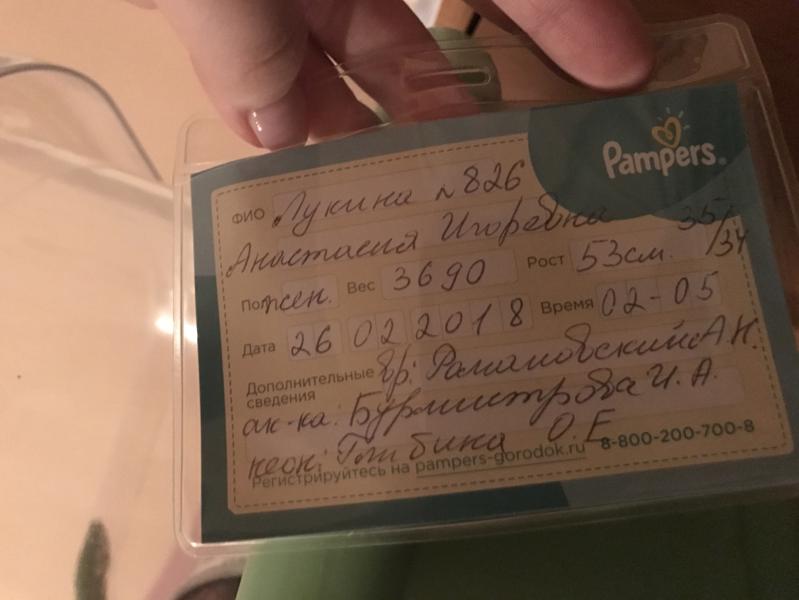 Pampers®
ФИО Лукина №826
Анастасия Игоревна 35/34
Пол жен. Вес 3690 Рост 53см.
Дата 26 02 2018 Время 02-05
Дополнительные сведения вр: Романовский А.Н.
ак-ка: Бурмистрова И.А.
неон: О.Е.
Регистрируйтесь на pampers-gorodok.ru 8-800-200-700-8